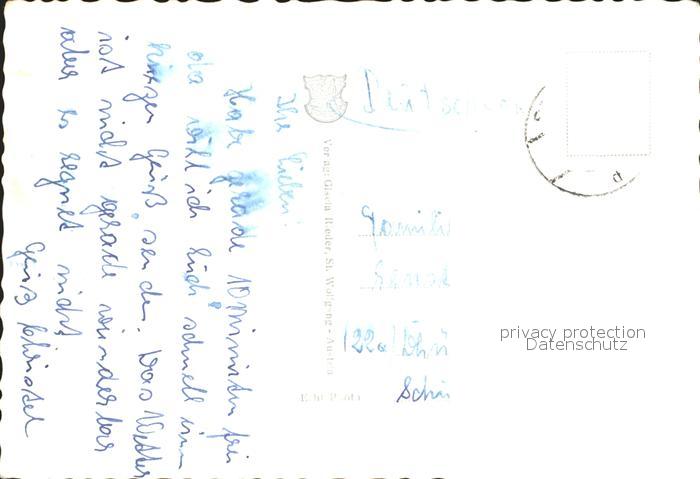 Ihr Lieben!
Habe gerade 10 Minuten frei
da will ich Euch schnell einen
kurzen Gruß senden. Das Wetter
ist nicht gerade wunderbar
aber es regnet nicht
Gruß Christel
Verlag: Gisela Rieder, St. Wolfgang - Austria
Echt Photo
Familie
(22a)
privacy protection
Datenschutz